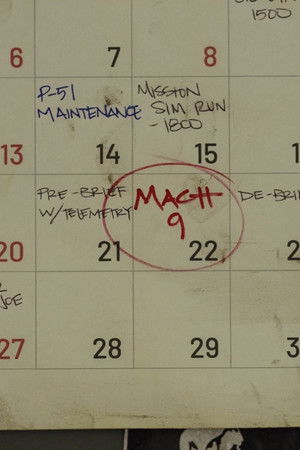 1500
6
7
8
P-51
MAINTENANCE
MISSION
SIM RUN
-1800
13
14
15
1
PRE-BRIEF
W/TELEMETRY
MACH
9
DE-BRI
20
21
22
2
JOE
27
28
29
3